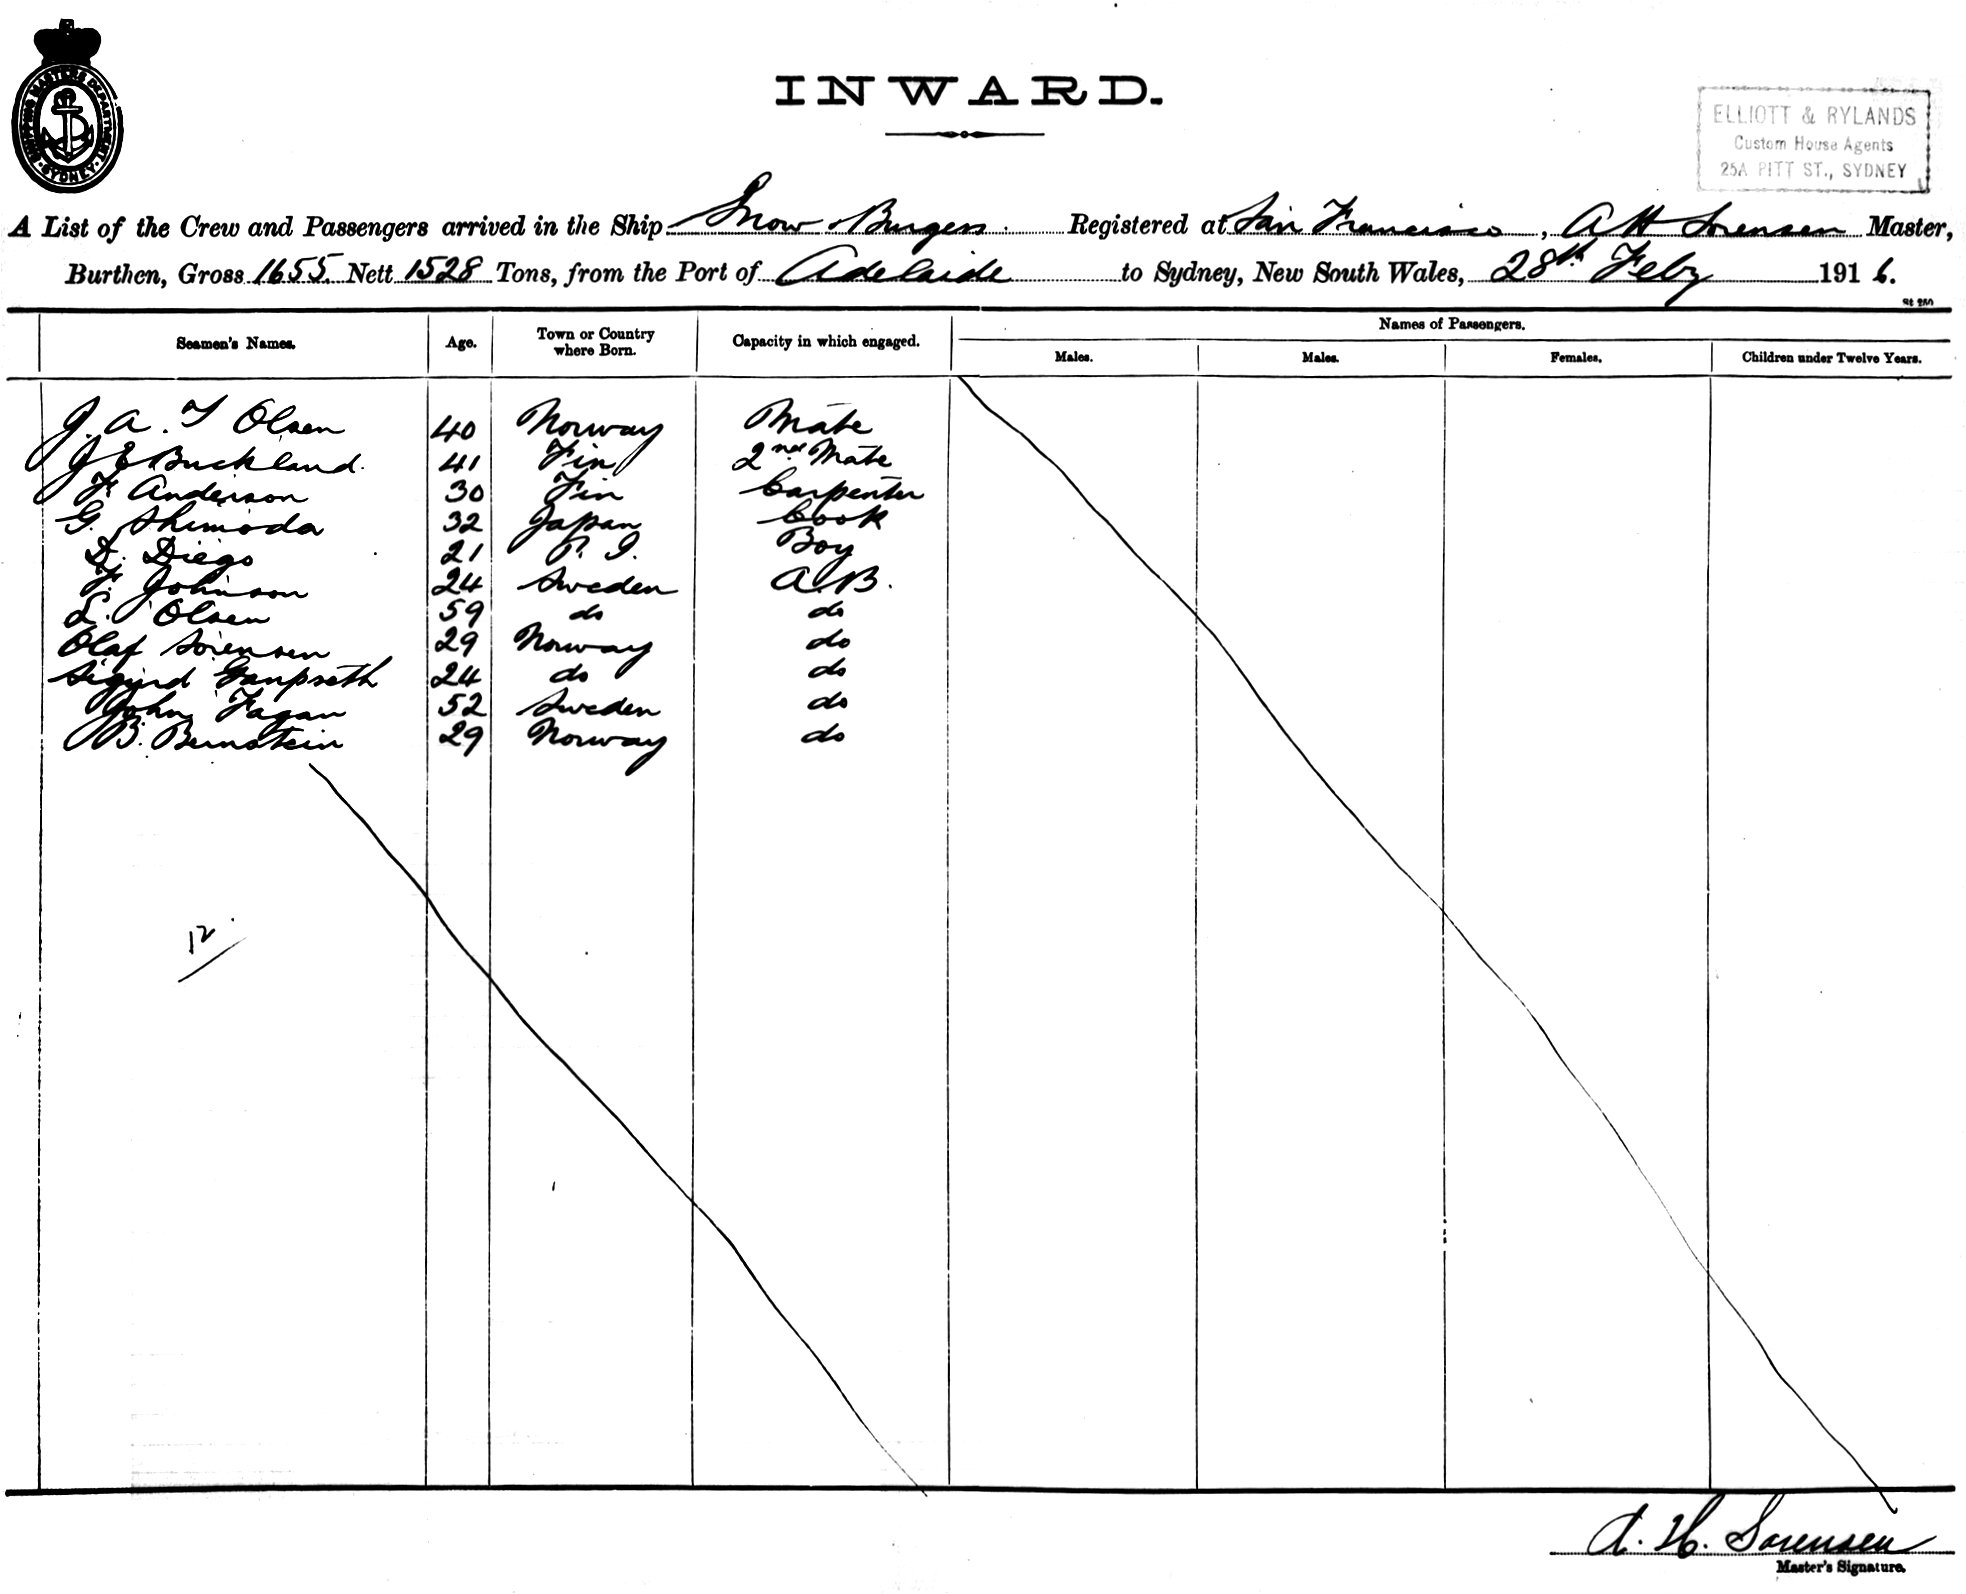 SHIPPING MASTERS DEPARTMENT · SYDNEY ·
INWARD.
ELLIOTT & RYLANDS
Custom House Agents
25A PITT ST., SYDNEY
A List of the Crew and Passengers arrived in the Ship Snow & Burgess Registered at San Francisco, A H Sorensen Master,
Burthen, Gross 1655 Nett 1528 Tons, from the Port of Adelaide to Sydney, New South Wales, 28th Feby 1916.
Names of Passengers.
Seamen's Names. Age. Town or Country where Born. Capacity in which engaged. Males. Males. Females. Children under Twelve Years.
J. A. T Olsen 40 Norway Mate
J E Buckland. 41 Fin 2nd Mate
F. Anderson 30 Fin Carpenter
G. Shimoda 32 Japan Cook
D. Diego 21 P. I. Boy
F. Johnson 24 Sweden A.B.
L. Olsen 59 do do
Olaf Sorensen 29 Norway do
Sigurd 24 do do
John Fagan 52 Sweden do
B. Bernstein 29 Norway do
12
A. H. Sorensen
Master's Signature.